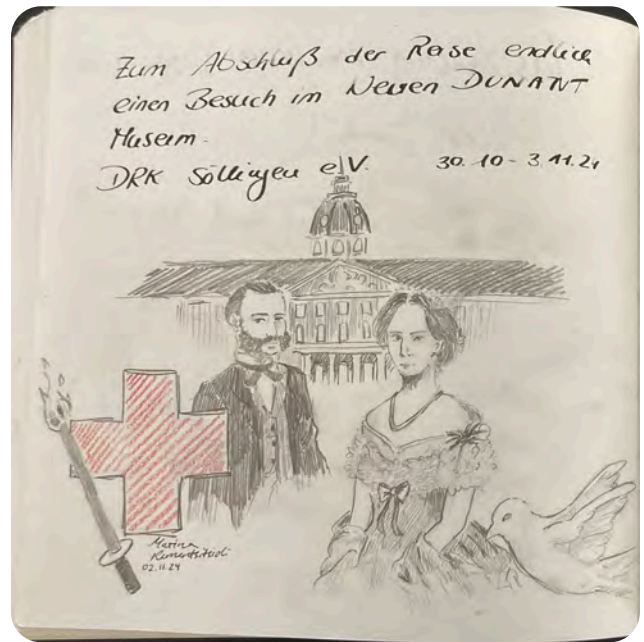 Zum Abschluß der Reise endlich
einen Besuch im Neuen DUNANT
Museum.
DRK Söllingen e.V. 30.10-3.11.24
Marina
02.11.24